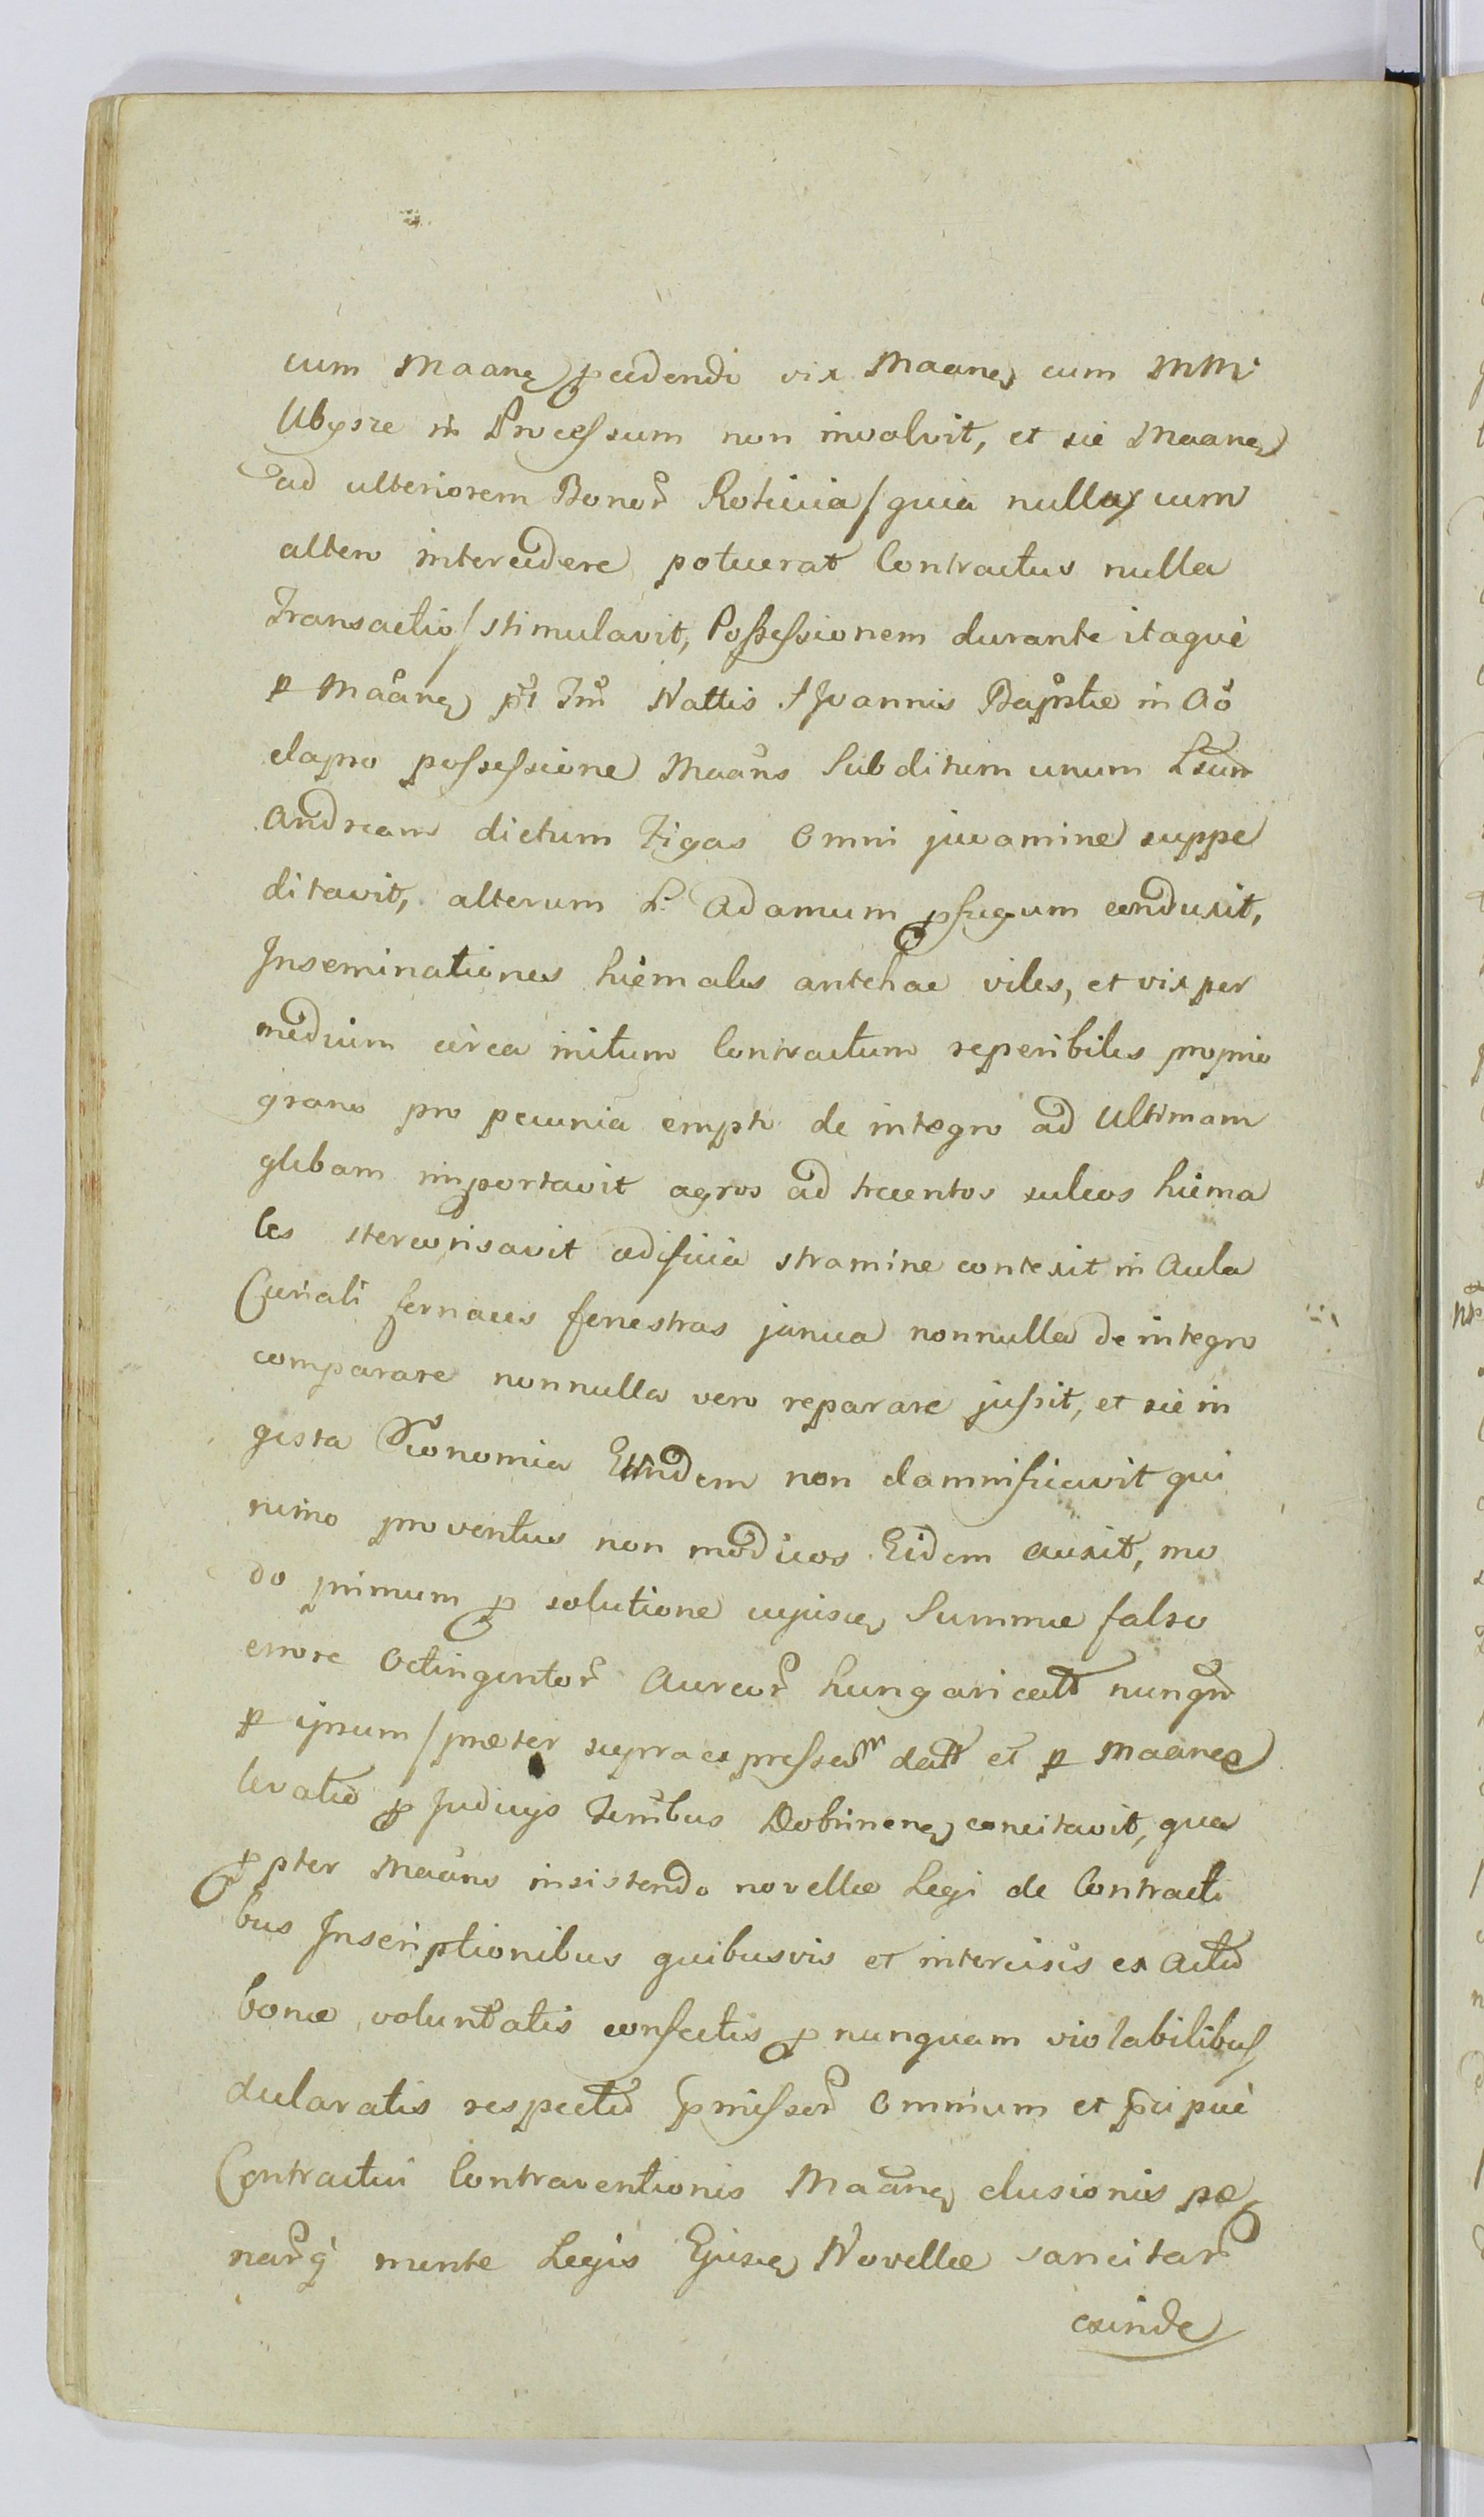 cum Maang pcedendi vix Maang cum MMi
Ubysze in Processum non involvit, et sic Maang
ad ulteriorem Bonor Roticia / quia nulla cum
altero intercedere potuerat Contractus nulla
Transactio / stimulavit, Possessionem durante itaque
p Maang pt Fm Nattis S Joannis Baptstæ in Ao
elapso possessione Maans Subditum unum Lsum
Andream dictum Figas omni juvamine suppe
ditavit, alterum L. Adamum pfugum conduxit,
Inseminationes hiemales antehac viles, et vix per
medium circa initum Contractum reperibiles proprio
grano pro pecunia empto de integro ad Ultimam
glebam importavit agros ad trecentos sulcos hiema
les stercorisavit ædificia stramine contexit in Aula
Curiali fornaces fenestras janua nonnulla de integro
comparare nonnulla vero reparare jussit, et sic in
gesta Œconomia Eundem non damnificavit qui
nimo proventus non modicos Eidem auxit, mo
do primum p solutione cujusq Summæ falso
errore Octingentor Aureor hungaricalt nunqm
p ipsum / præter supra expressam datt et p Maang
levatio p Judicijs Trribus Dobrinens concitavit, qua
ppter Maans insistendo novellæ Legi de Contracti
bus Inscriptionibus quibusvis et intercisis ex actu
bonæ voluntatis confectis p nunquam violabilibus
declaratis respectu pmissor omnium et pcipue
Contractui Contraventionis Maang elusionis pæ
narq mente Legis Ejusq Novellæ sancitar
exinde